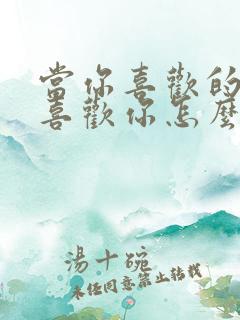 當你喜歡的
喜歡你怎麼
湯十碗
未經同意禁止轉載